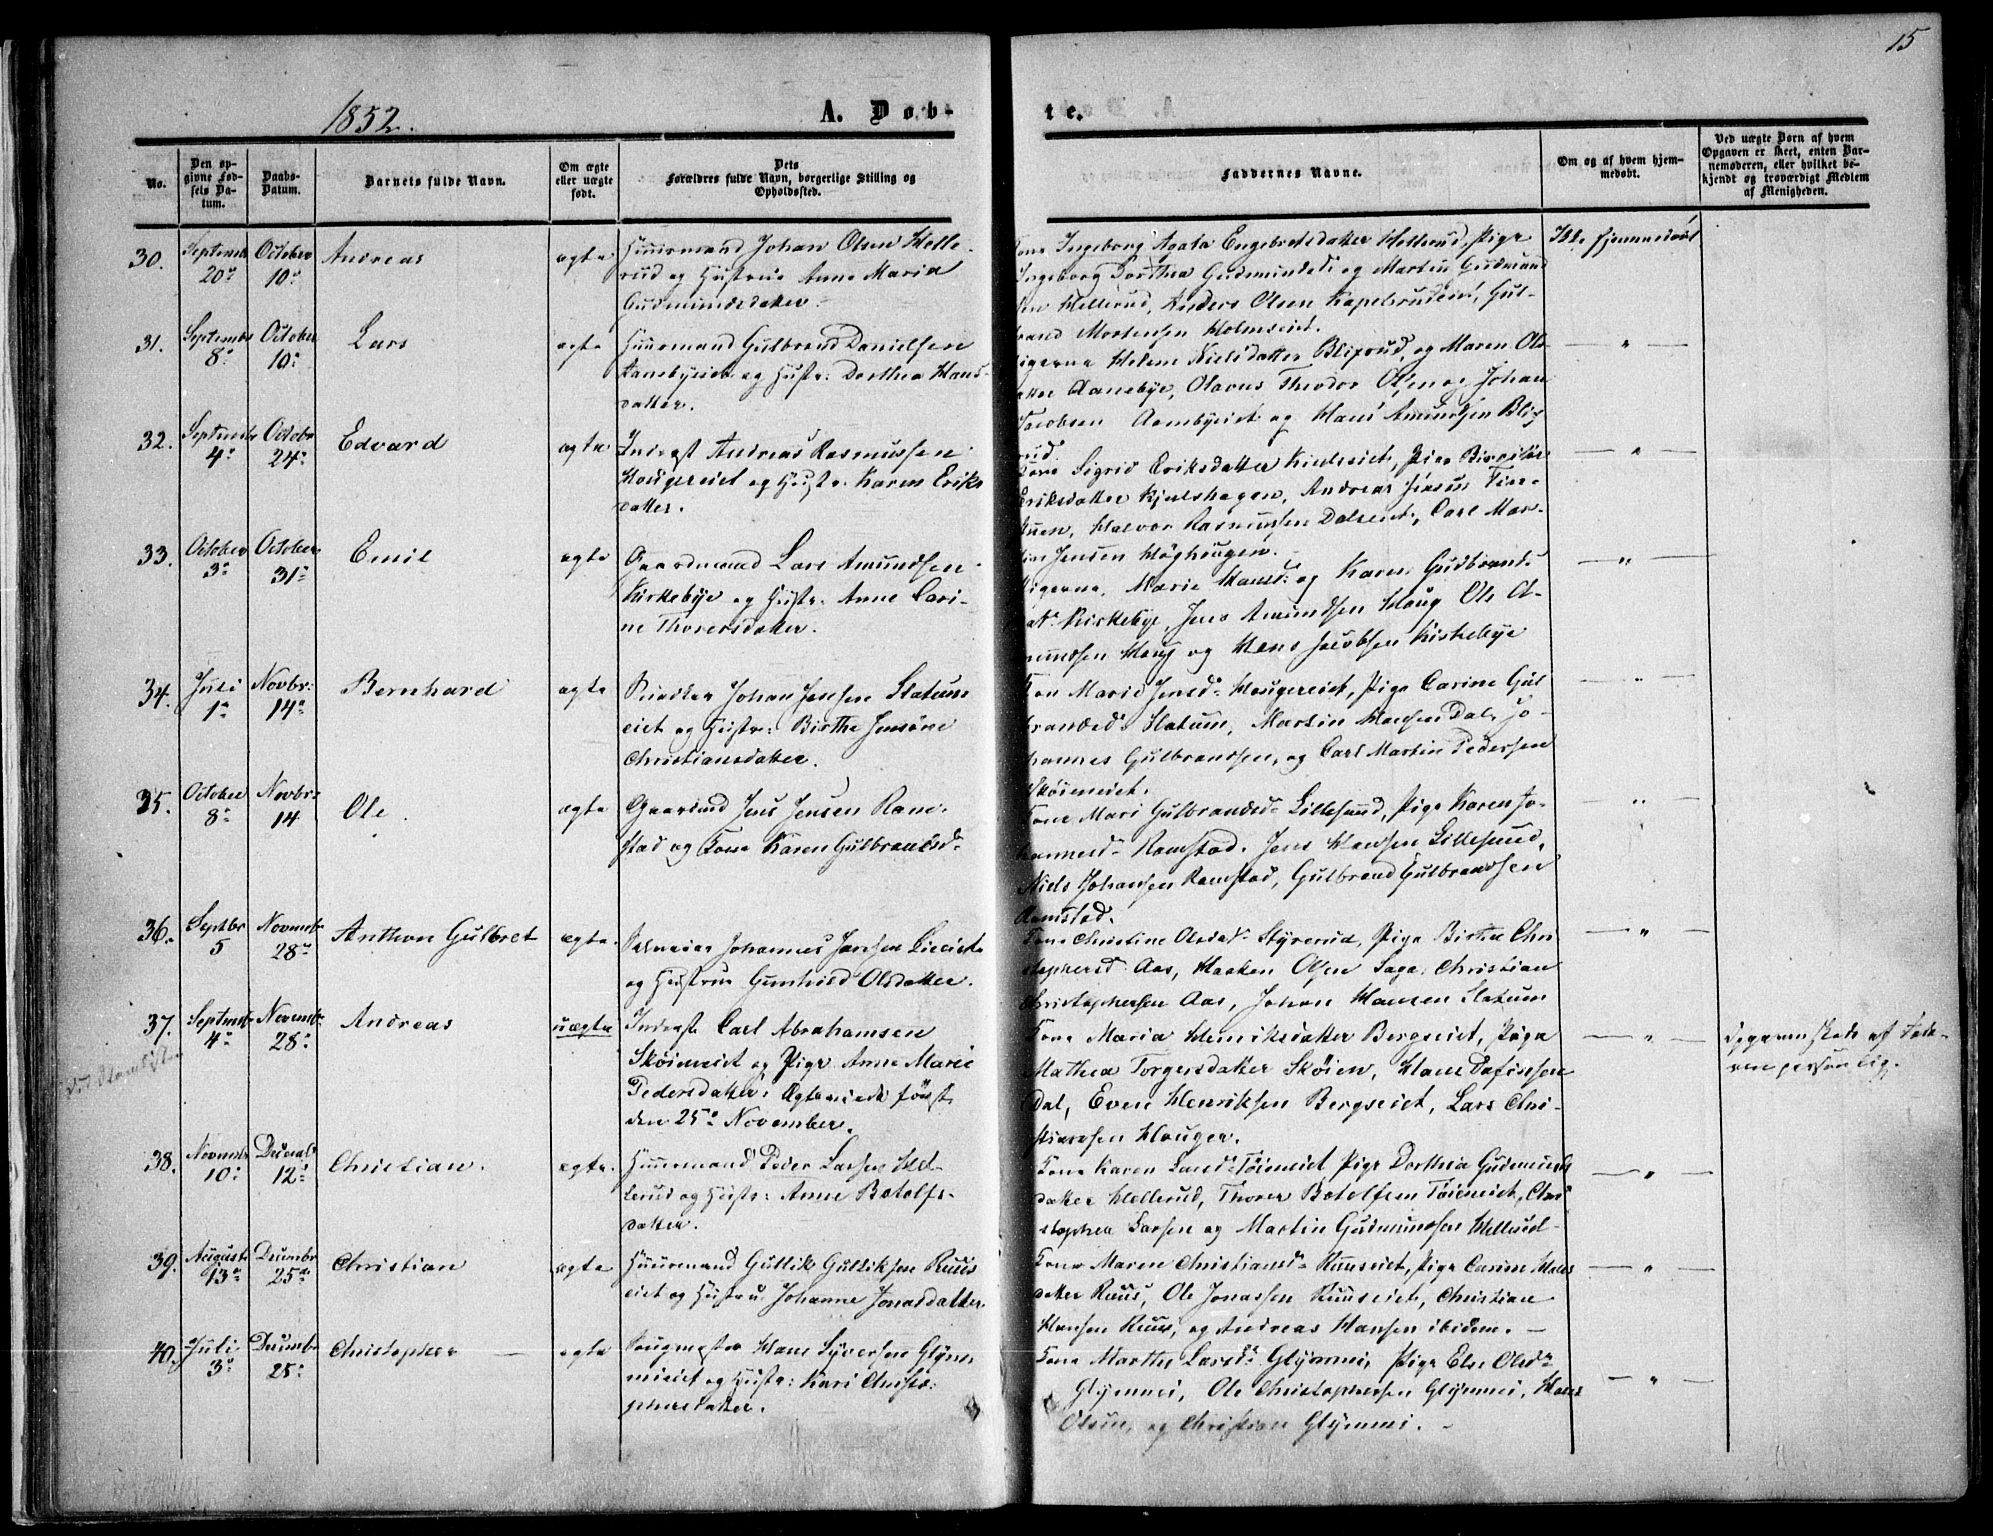 15
1852.
A. Døb-
te.
No.
Den op-
givne Fød-
sels Da-
tum.
Daabs-
Datum.
Barnets fulde Navn.
Om ægte
eller uægte
født.
Dets
Forældres fulde Navn, borgerlige Stilling og
Opholdssted.
Faddernes Navne.
Om og af hvem hjem-
medøbt.
Ved uægte Børn af hvem
Opgaven er skeet, enten Bar-
nemoderen, eller hvilket be-
kjendt og troværdigt Medlem
af Menigheden.
30.
Septembr
20de
October
10de
Andreas
ægte
Huusmand Johan Olsen Helle-
rud og Hustrue Anne Maria
Gudmundsdatter.
Kone Ingeborg Agata Engebretsdatter Hellerud, Pige
Ingeborg Dorthea Gudmundsd. og Martin Gudmund
sen Hellerud, Anders Olsen Kapelsrudeiet, Gul-
brand Mortensen Holmseiet.
Ikke hjemmedøbt
31.
Septembr
8de
October
10de
Lars
ægte
Huusmand Gulbrand Danielsen
Aansbyeiet og Hustr: Dorthea Hans-
datter.
Pigerne Helene Nielsdatter Blixrud, og Maren Ols-
datter Aanebye, Olavus Theodor Olsen og Johan
Jacobsen Aambyeiet og Hans Amundsen Blix
rud.
— " —
32.
Septembr
4de
Octobr
24de
Edvard
ægte
Inderst Andreas Rasmussen
Haugereiet og Hustr. Karen Eriks
datter.
Kone Sigrid Eriksdatter Pige
Eriksdatter Kjelshagen, Andreas Jensen
Halvor Rasmussen Dalseiet, Carl Mar-
tin Jensen Høghaugen.
— " —
33.
October
3de
October
31de
Emil
ægte
Gaardmand Lars Amundsen
Kirkebye og Hustr. Anne Cari-
ne Thorersdatter.
Pigerne Marie Hansd: og Karen Gudbrands
dat. Kirkebye, Jens Amundsen Haug Ole A-
mundsen Haug og Hans Jacobsen Kirkebye
— " —
34.
Juli
1de
Novbr:
14de
Bernhard
ægte
Johan Jensen Slatum
eiet og Hustr: Birthe Jensine
Christiansdatter.
Kone Marie Jensd. Haugereiet, Pige Carine Gul
brandsd. Slatum, Martin Hansen Dal, Jo-
hannes Gulbrandsen, og Carl Martin Pedersen
Skøieneiet.
— " —
35.
October
8de
Novbr:
14
Ole
ægte
Gaardmd Jens Jensen Ram-
stad og Kone Karen Gulbrandsd.
Kone Mari Gulbrandsd. Lillesund, Pige Karen Jo-
hannesd. Ramstad. Jens Hansen Lillesund,
Niels Johansen Ramstad, Gulbrand Gulbrandsen
Ramstad.
— " —
36.
Septbr
5
Novembr
28de
Anthon Gulbret
ægte
Johannes Jansen Lieeiet
og Hustrue Gunhild Olsdatter.
Kone Christine Olsdat. Styrerud, Pige Birthe Chri
stophersd. Aas, Haaken Olsen Saga, Christian
Christophersen Aas, Johan Hansen Slatum
— " —
37.
Septembr
4de
Novembr.
28de
Andreas
uægte
Inderst Carl Abrahamsen
Skøieneiet og Pige Anne Marie
Pedersdatter. Ægteviede først
den 25de November.
Kone Maria Henriksdatter Bergseiet, Pige
Mathea Torgersdatter Skøien, Hans Dafinsen
Dal, Even Henriksen Bergseiet, Lars Chri-
stiansen Hauger.
— " —
Opgaven skede af Fade-
ren personlig.
38.
Novembr
10de
Decembr
12de
Christian.
ægte
Huusmand Peder Larsen Hel-
lerud og Hustr: Anne Botolfs-
datter.
Kone Karen Larsd. Tøieneiet Pige Dorthea Gudmunds
datter Hellerud, Thorer Botolfsen Tøieneiet, Chri
stopher Larsen og Martin Gudmundsen Hellerud
— " —
39.
August
13de
Decembr
25de
Christian
ægte
Huusmand Gullik Gulliksen Ruus
eiet og Hustru Johanne Jonasdatter
Kone Maren Christiansd. Ruuseiet, Pige Carine Hans
datter Ruus, Ole Jonassen Ruuseiet, Christian
Hansen Ruus, og Andreas Hansen ibidem. —
— " —
40.
Juli
3de
Decembr
25de
Christopher
ægte
Hans Syversen Glym-
mieiet og Hustr: Kari Christo-
phersdatter.
Kone Marthe Larsd. Glymmei, Pige Else Olsd.
Glymmei, Ole Christophersen Glymmei, Hans
Olsen, og Christian Glymmei. —
— " —